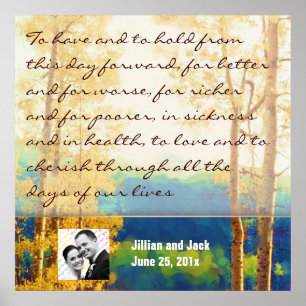 To have and to hold from
this day forward, for better
and for worse, for richer
and for poorer, in sickness
and in health, to love and to
cherish through all the
days of our lives
Jillian and Jack
June 25, 201x